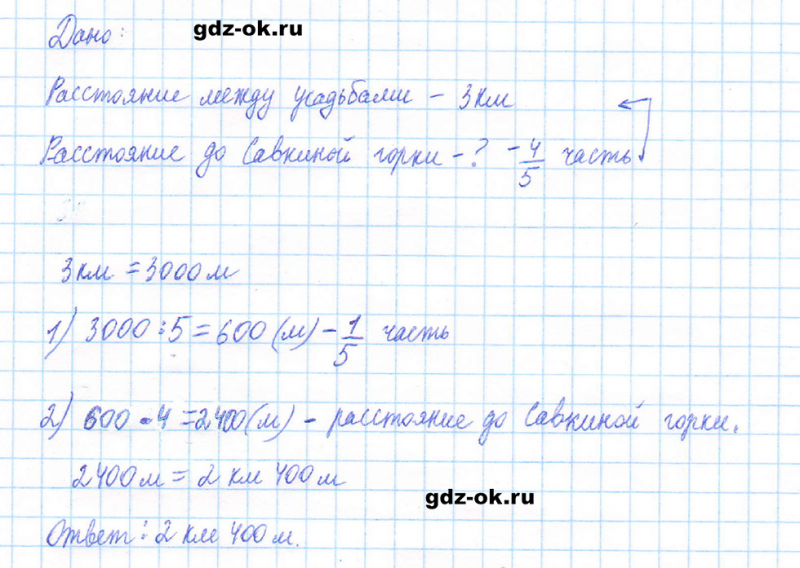 Дано: gdz-ok.ru
Расстояние между усадьбами - 3 км
Расстояние до Савкиной горки - ? - 4/5 часть
3 км = 3000 м
1) 3000 : 5 = 600 (м) - 1/5 часть
2) 600 · 4 = 2400 (м) - расстояние до Савкиной горки.
2400 м = 2 км 400 м
gdz-ok.ru
Ответ: 2 км 400 м.